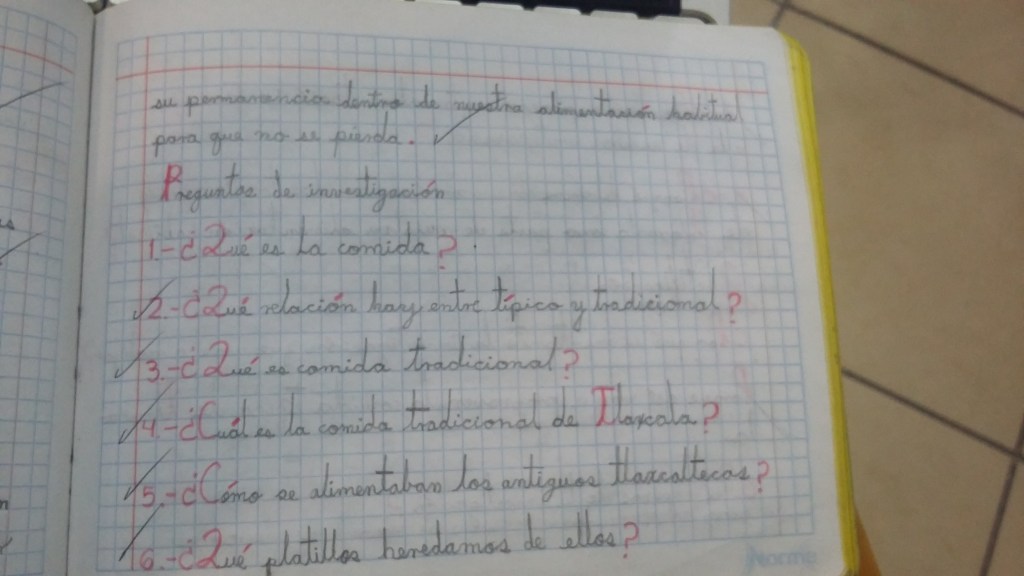 su permanencia dentro de nuestra alimentación habitual
para que no se pierda.
Preguntas de investigación
1.-¿Qué es la comida?
2.-¿Qué relación hay entre típico y tradicional?
3.-¿Qué es comida tradicional?
4.-¿Cuál es la comida tradicional de Tlaxcala?
5.-¿Cómo se alimentaban los antiguos tlaxcaltecas?
6.-¿Qué platillos heredamos de ellos?
Norma